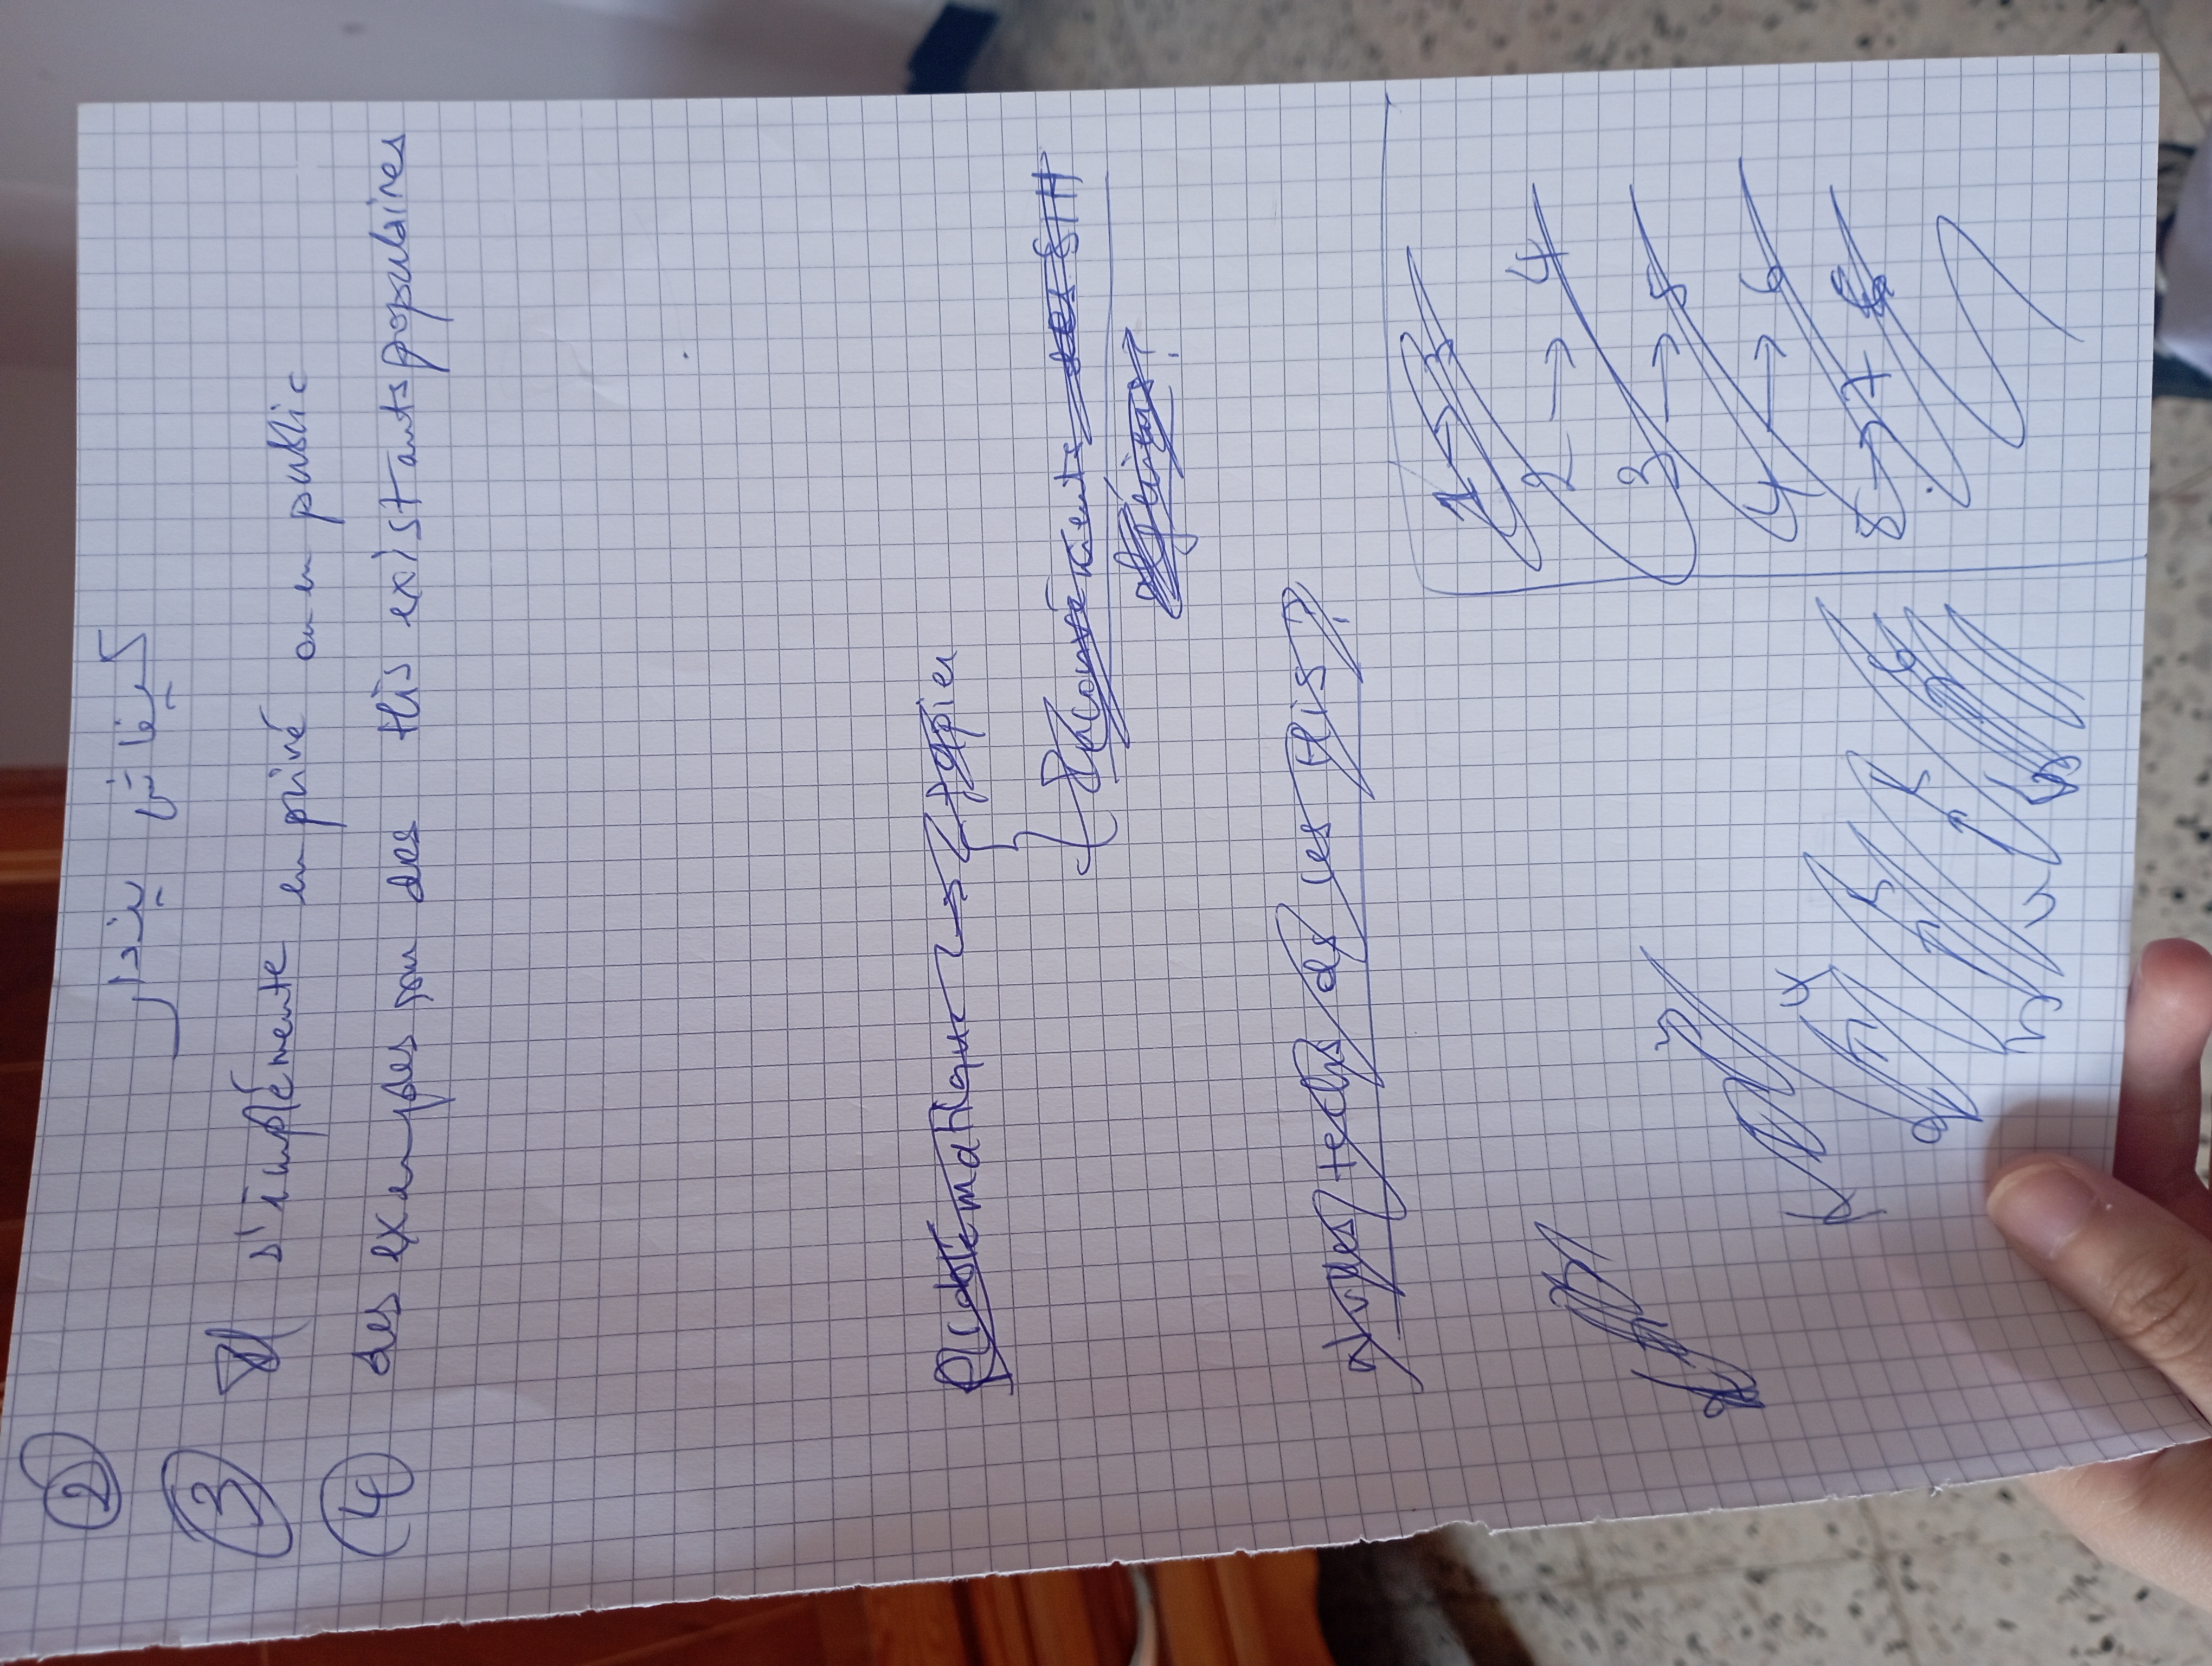 2 كيفاش يندار
3 s'implémente en privé ou en public
4 des exemples pour des HIS existants populaires
Problématique → papier
Inconvénients des SIH
algériens?
techs de ces HIS?
1 → 3
2 → 4
3 → 5
4 → 6
5 → 7